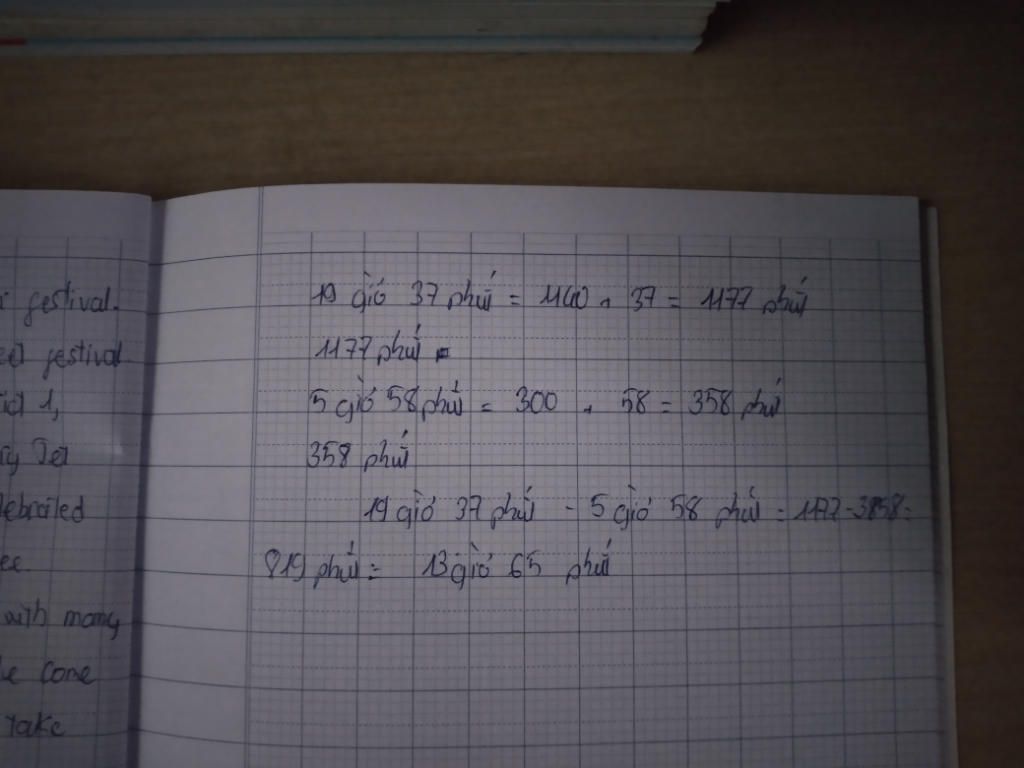 festival.
festival.
1,
Tet
with many
come
take
19 giờ 37 phút = 1140 + 37 = 1177 phút
1177 phút
5 giờ 58 phút = 300 + 58 = 358 phút
358 phút
19 giờ 37 phút - 5 giờ 58 phút = 1177 - 358 =
819 phút = 13 giờ 65 phút